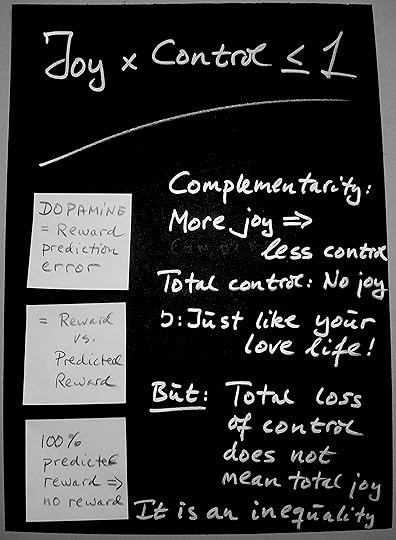 Joy x Control ≤ 1
Complementarity:
More joy =>
less control
Total control: No joy
Just like your
love life!
But: Total loss
of control
does not
mean total joy
It is an inequality
DOPAMINE
= Reward
prediction
error
= Reward
vs.
Predicted
Reward
100%
predicted
reward =>
no reward